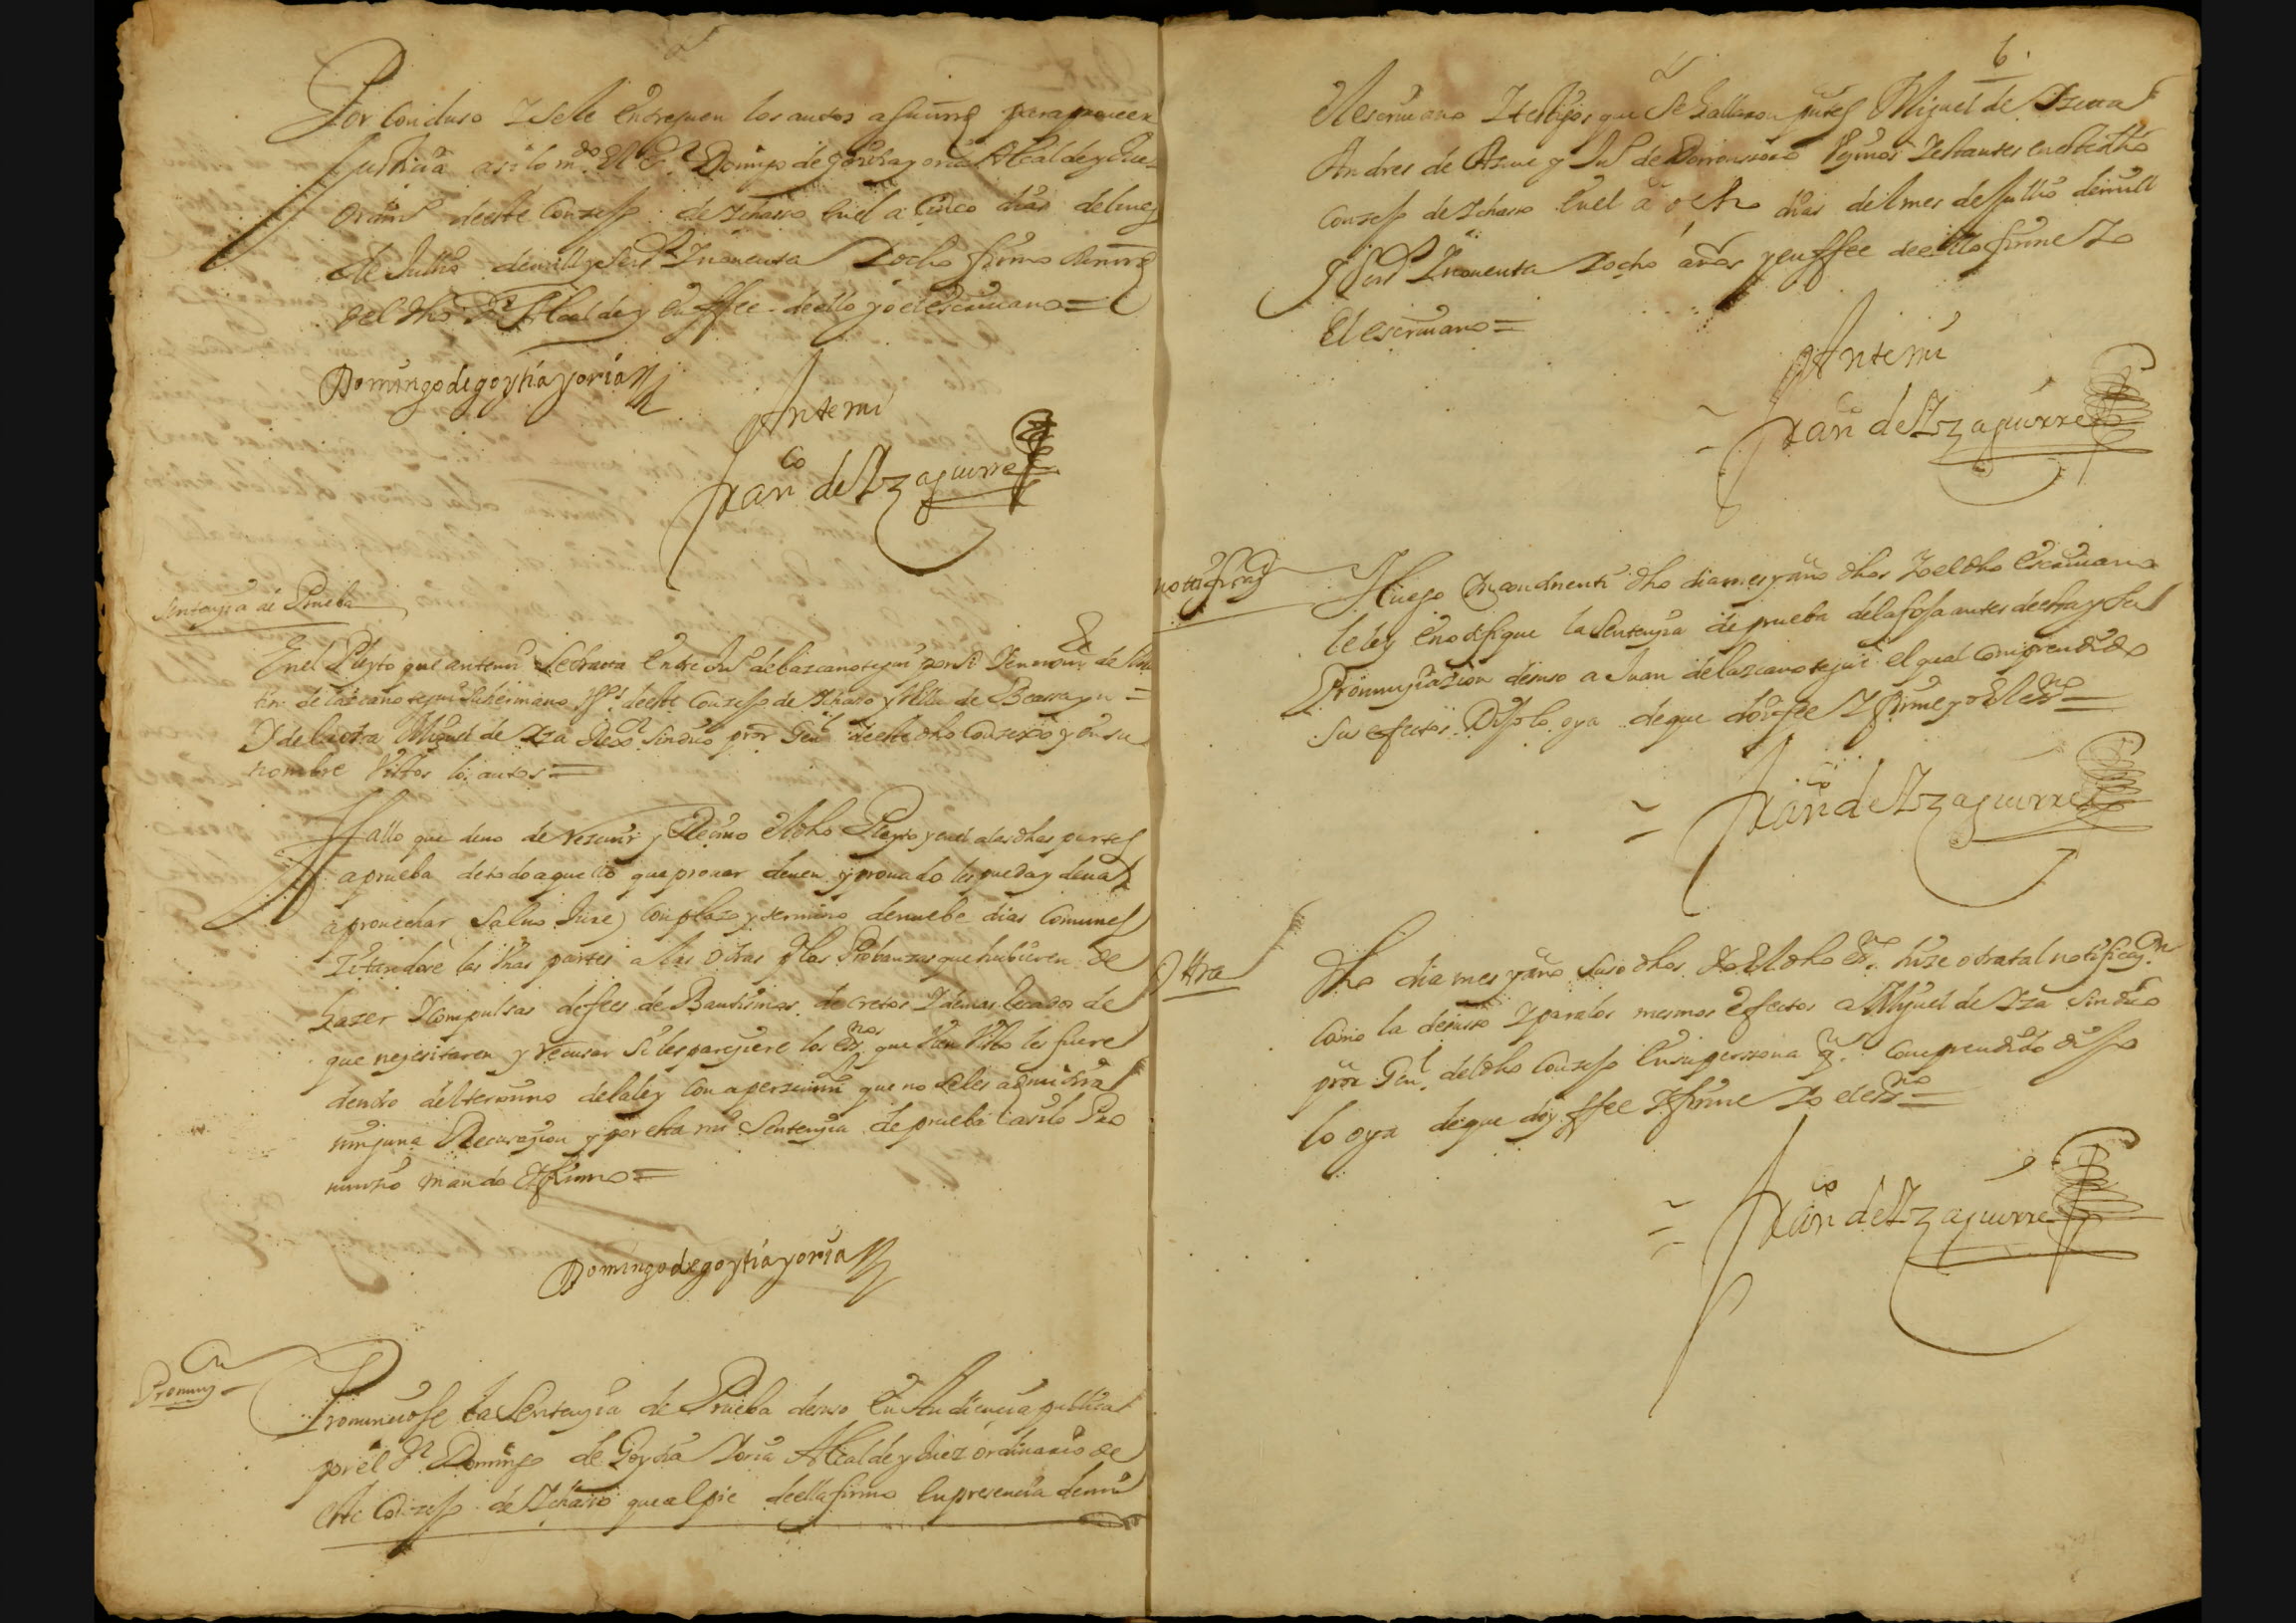 Por concluso Y se le entreguen los autos a su mrd para proveer
Justicia assi lo mdo El Sr Domingo de goytia y oria Alcalde y Juez
ordinº de este Conzejo de Ychasso en el a Cinco dias del mes
de Jullio de mill y seisº Y nouenta Y ocho firmo su mrd
el dho Sr Alcalde y en ffee de ello yo el escriuano =
Domingo de goytia y oria
Ante mi
Franco de Yzaguirre
Sentençia de Prueba
En el Pleyto que ante mi Se tracta Entre Juº de lazcanotegui por si Y en nombre de
de lazcanotegui su hermano de este Conzejo de Ychasso y Villa de Beasayn =
Y de la otra Miguel de Yza Sindico pror Genl de este dho Conzejo y en su
nombre Vistos los autos =
Fallo que deuo de reseuir y Reciuo el dho Pleyto y en el a las dhas partes
a prueba de todo aquello que prouar deuen y prouado les pueda y deua
aprouechar Saluo Jure) Con plazo y termino de nuebe dias Comunes
Zitandose las dhas partes a las otras Probanzas que hubieren de
hazer Y compulsas de fees de Bautismos decretos Y demas recados de
que neçesitaren y recusar Si les pareçiere los essnos que bien Visto les fuere
dentro del termino de la ley con aperzeuimº que no Se les admitira
ninguna Recusaçion y por esta mi Sentençia de prueba Assi lo Pro
nunçio mando Y firmo =
Domingo de goytia y oria
Pronunçon
Pronunciose la Sentençia de Prueba de suso En Audiencia publica
por el Sr Domingo de Goytia Y oria Alcalde y Juez ordinario de
este Conzejo de Ychasso que al pie de ella firmo En presencia de mi
6
el escriuano Y testigos que Se hallaron pntes Miguel de
Andres de y Juº de Dorronsoro Vezinos Y estantes en el dho
Conzejo de Ychasso En el a ocho dias del mes de Jullio de mill
y Seisº Y nouenta Y ocho años y en ffee de ello firme Yo
El escriuano =
Ante mi
Franco de Yzaguirre
nottificaçon
Luego Yncontinenti dho dia mes y año dhos Yo el dho Escriuano
le ley E notifique la Sentençia de prueba de la foja antes de esta y su
Pronunçiaçion de suso a Juan de lazcanotegui el qual Comprendido
Sus efectos Dijo lo oya de que doy fee Y firme yo El essno =
Franco de Yzaguirre
Ottra
Dho dia mes y año Suso dhos Yo El dho Esº hize otra tal notificaçon
Como la de suso Y para los mesmos efectos a Miguel de Yza Sindico
pror Genl del dho Conzejo En su perssona q. Comprendido dijo
lo oya de que doy ffee Y firme Yo el essno =
Franco de Yzaguirre